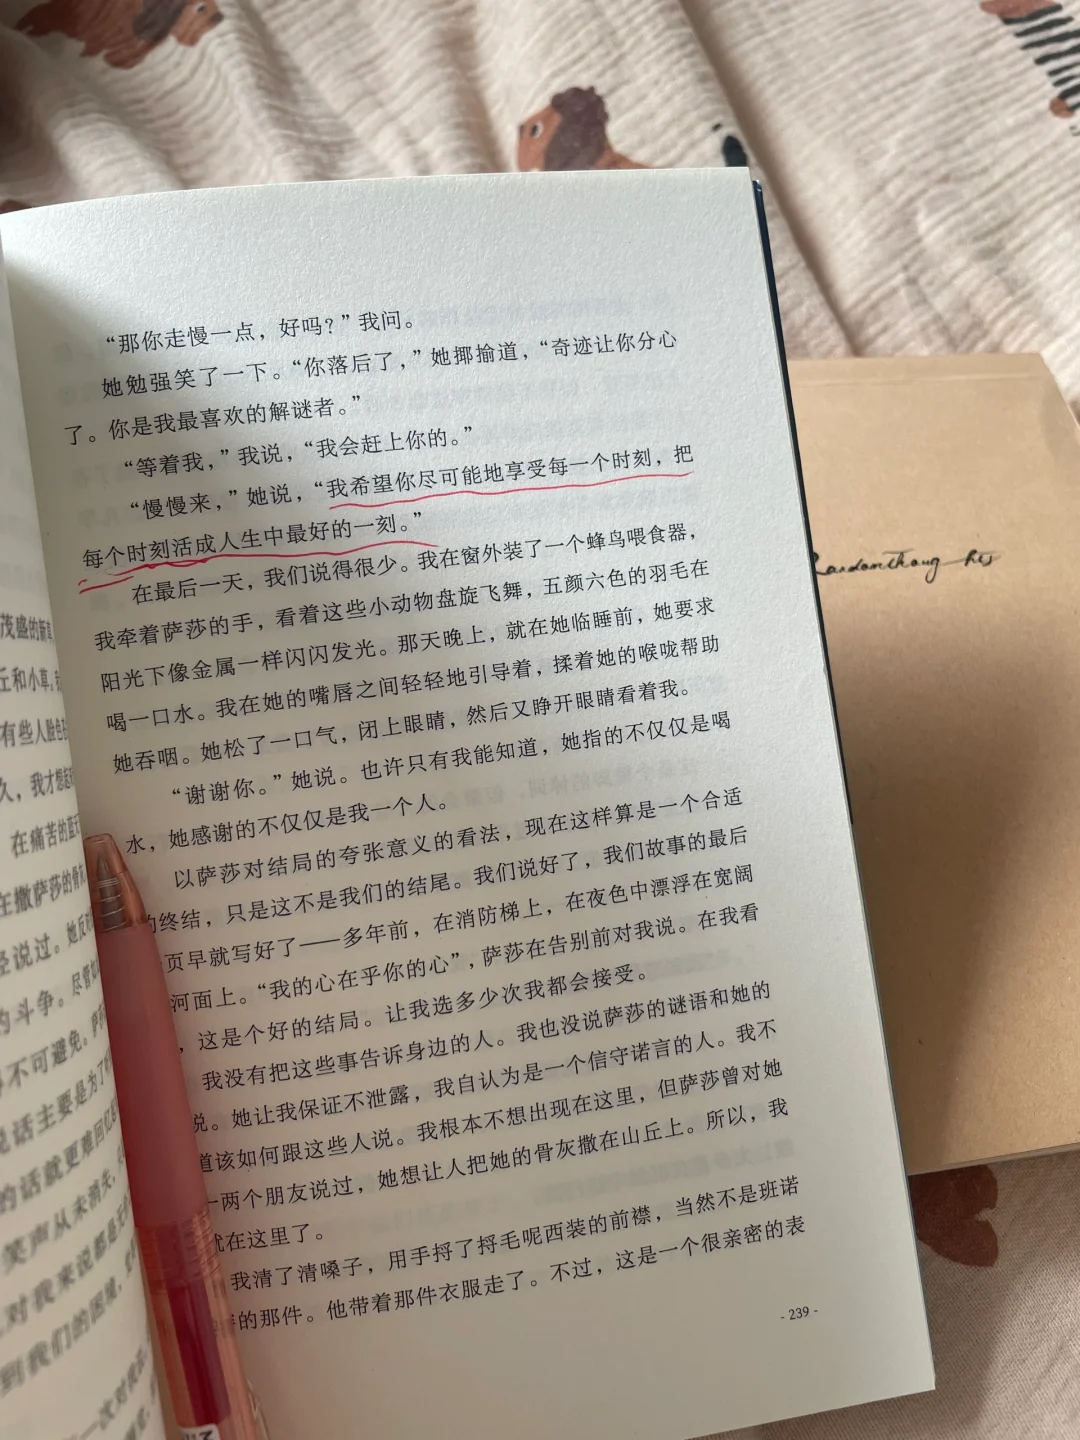 “那你走慢一点，好吗？”我问。
她勉强笑了一下。“你落后了，”她揶揄道，“奇迹让你分心
了。你是我最喜欢的解谜者。”
“等着我，”我说，“我会赶上你的。”
“慢慢来，”她说，“我希望你尽可能地享受每一个时刻，把
每个时刻活成人生中最好的一刻。”
在最后一天，我们说得很少。我在窗外装了一个蜂鸟喂食器，
我牵着萨莎的手，看着这些小动物盘旋飞舞，五颜六色的羽毛在
阳光下像金属一样闪闪发光。那天晚上，就在她临睡前，她要求
喝一口水。我在她的嘴唇之间轻轻地引导着，揉着她的喉咙帮助
她吞咽。她松了一口气，闭上眼睛，然后又睁开眼睛看着我。
“谢谢你。”她说。也许只有我能知道，她指的不仅仅是喝
水，她感谢的不仅仅是我一个人。
以萨莎对结局的夸张意义的看法，现在这样算是一个合适
的终结，只是这不是我们的结尾。我们说好了，我们故事的最后
页早就写好了——多年前，在消防梯上，在夜色中漂浮在宽阔
河面上。“我的心在乎你的心”，萨莎在告别前对我说。在我看
，这是个好的结局。让我选多少次我都会接受。
我没有把这些事告诉身边的人。我也没说萨莎的谜语和她的
说。她让我保证不泄露，我自认为是一个信守诺言的人。我不
道该如何跟这些人说。我根本不想出现在这里，但萨莎曾对她
一两个朋友说过，她想让人把她的骨灰撒在山丘上。所以，我
就在这里了。
我清了清嗓子，用手捋了捋毛呢西装的前襟，当然不是班诺
的那件。他带着那件衣服走了。不过，这是一个很亲密的表
- 239 -
茂盛的新草
丘和小草。
有些人脸色
久，我才想起
在痛苦的蓝天
在撒萨莎的骨灰
经说过。她反
的斗争。尽管如
不可避免。萨莎
说话主要是为了
的话就更难回忆
笑声从未消失，
对我来说都是无
到我们的困境，
一次对我